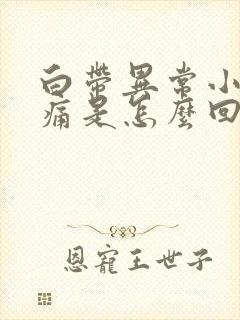 白帶異常小
痛是怎麼回
恩寵王世子